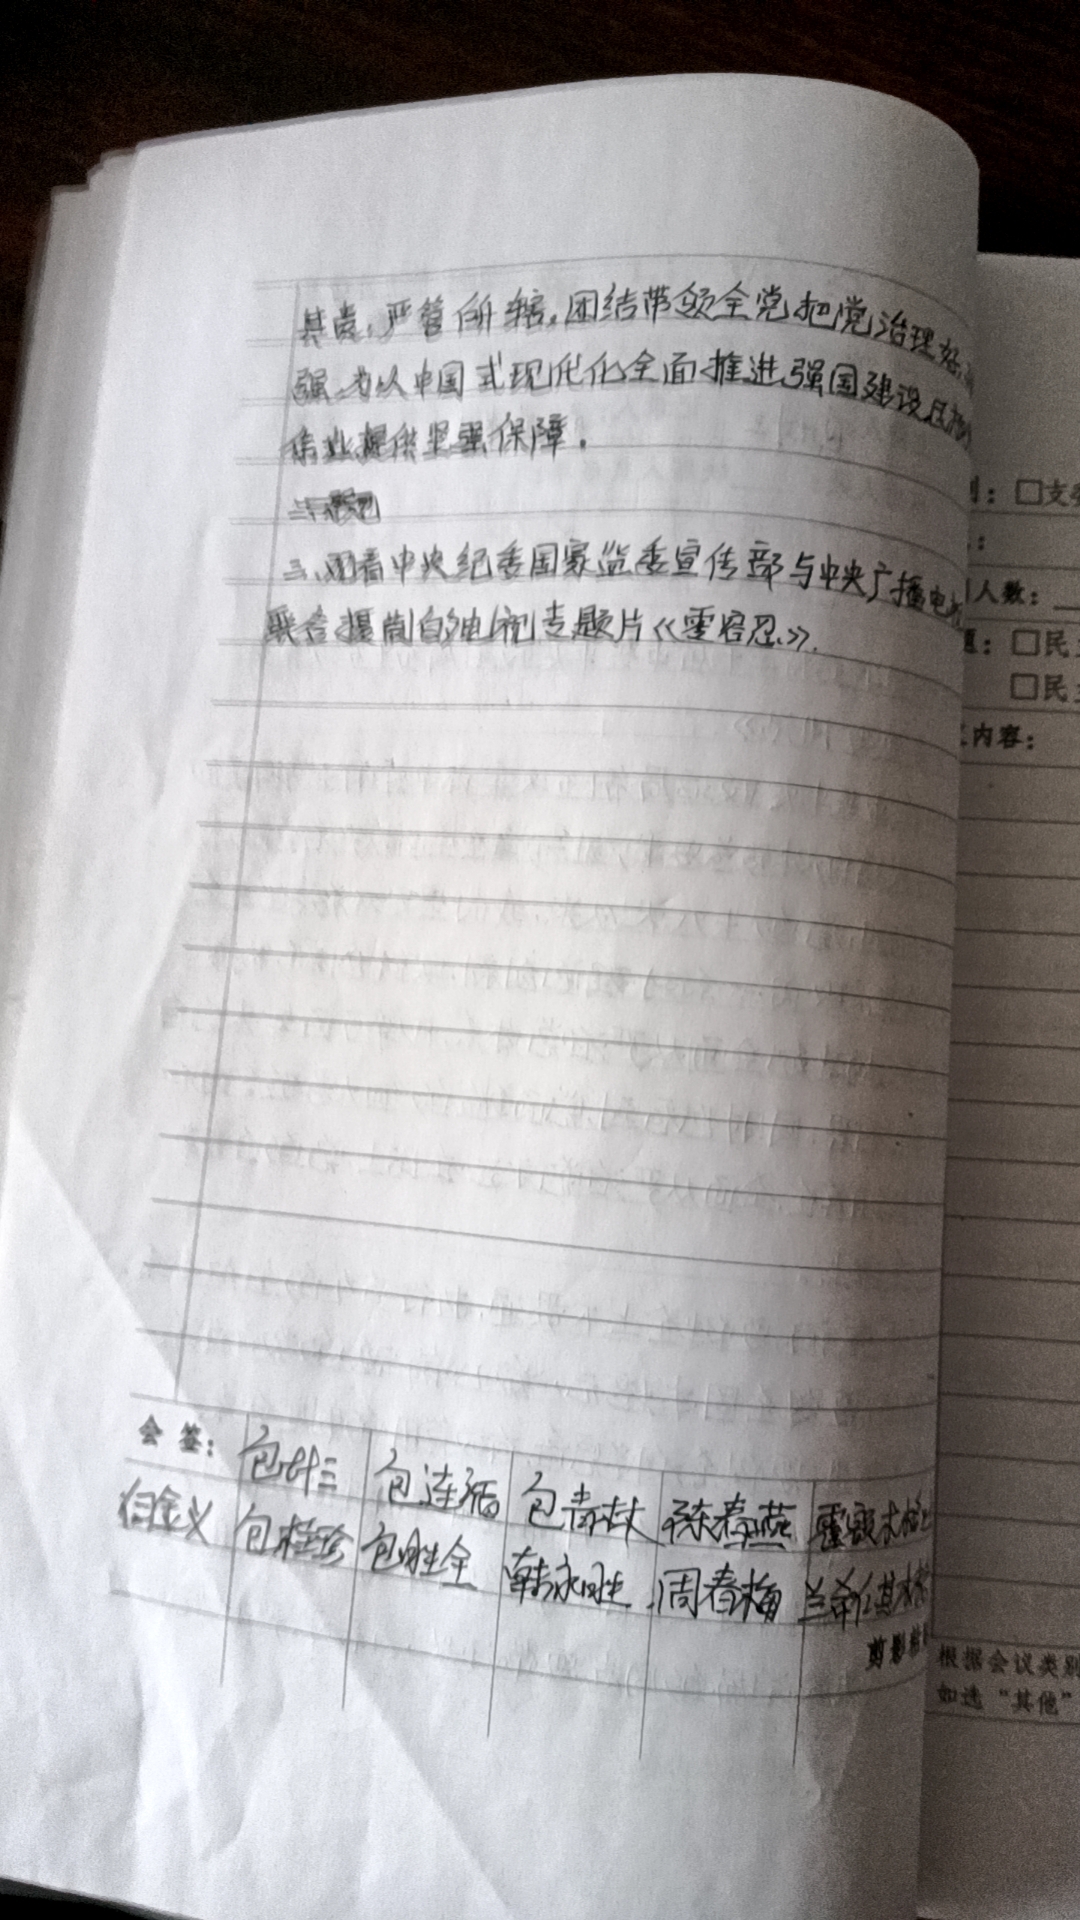 其责，严管所辖，团结带领全党把党治理好、
强，为以中国式现代化全面推进强国建设民
伟业提供坚强保障。
三、观看中央纪委国家监委宣传部与中央广播电
联合摄制的电视专题片《零容忍》。
会签：
包廿三
包连福
包青
陈春燕
白金义
包桂珍
包胜全
韩永胜
周春梅
剪影
：□支
：
人数：
题：□民
□民
内容：
根据会议类别
如选“其他”